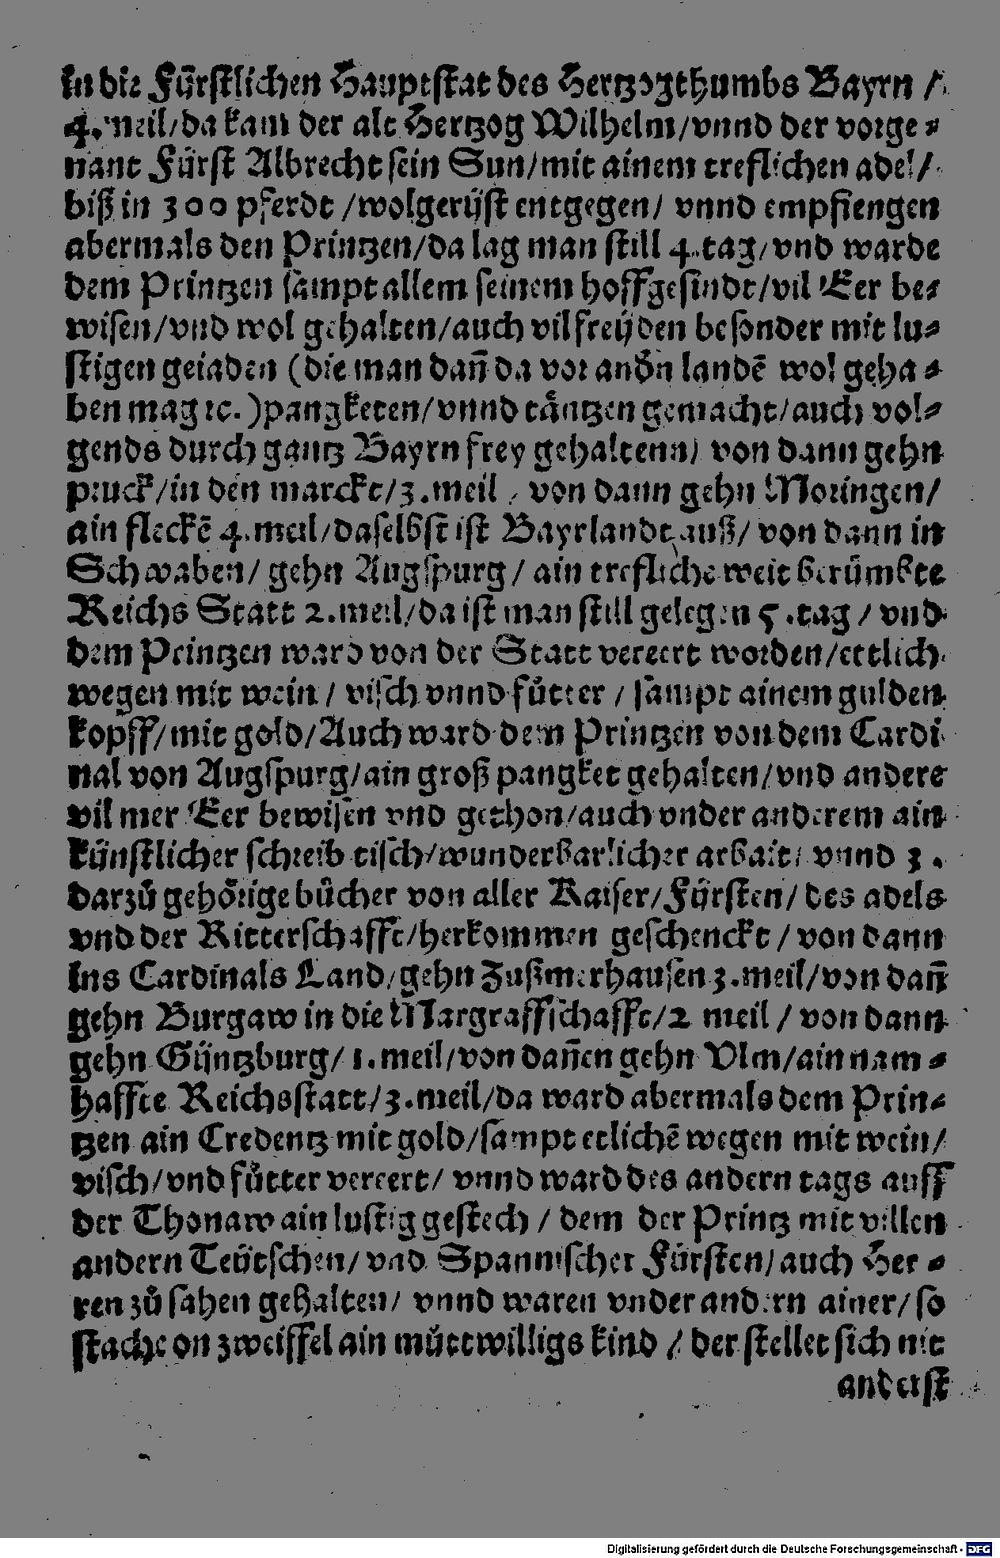 in die Fürstlichen Hauptstat des Hertzogthumbs Bayrn /
4. meil/da kam der alt Hertzog Wilhelm/vnnd der vorge⸗
nant Fürst Albrecht sein Sun/mit ainem treflichen adel/
biß in 300 pferdt /wolgerüst entgegen/ vnnd empfiengen
abermals den Printzen/da lag man still 4.tag/vnd warde
dem Printzen sampt allem seinem hoffgesindt/vil Eer be⸗
wisen/vnd wol gehalten/auch vil freyden besonder mit lu⸗
stigen geiaden (die man dañ da vor andn̄ landē wol geha⸗
ben mag ꝛc. )pangketen/vnnd täntzen gemacht/auch vol⸗
gends durch gantz Bayrn frey gehaltenn/ von dann gehn
pruck/in den marckt/3.meil / von dann gehn Moringen/
ain fleckē 4.meil/daselbst ist Bayrlandt auß/ von dann in
Schwaben/ gehn Augspurg / ain trefliche weit berümbte
Reichs Statt 2.meil/da ist man still gelegen 5.tag / vnd
dem Printzen ward von der Statt vereert worden/ettlich
wegen mit wein / visch vnnd fůtter / sampt ainem gulden
kopff/mit gold/Auch ward dem Printzen von dem Cardi
nal von Augspurg/ain groß pangket gehalten/vnd andere
vil mer Eer bewisen vnd gethon/auch vnder anderem ain
künstlicher schreib tisch/wunderbarlicher arbait/ vnnd 3.
darzů gehörige bůcher von aller Kaiser/Fürsten/ des adels
vnd der Ritterschafft/herkommen geschenckt / von dann
ins Cardinals Land/gehn Zußmerhausen 3.meil/von dañ
gehn Burgaw in die Margraffschafft/2 meil / von dann
gehn Güntzburg/ 1.meil/von dañen gehn Vlm/ain nam⸗
haffte Reichsstatt/3.meil/da ward abermals dem Prin⸗
tzen ain Credentz mit gold/sampt etlichē wegen mit wein/
visch/vnd fůtter vereert/ vnnd ward des andern tags auff
der Thonaw ain lustig gestech / dem der Printz mit villen
andern Teütschen/ vnd Spannischer Fürsten/auch Her⸗
ren zů sahen gehalten/ vnnd waren vnder andern ainer/so
stache on zweiffel ain můttwilligs kind / der stellet sich nit
anderst
Digitalisierung gefördert durch die Deutsche Forschungsgemeinschaft - DFG